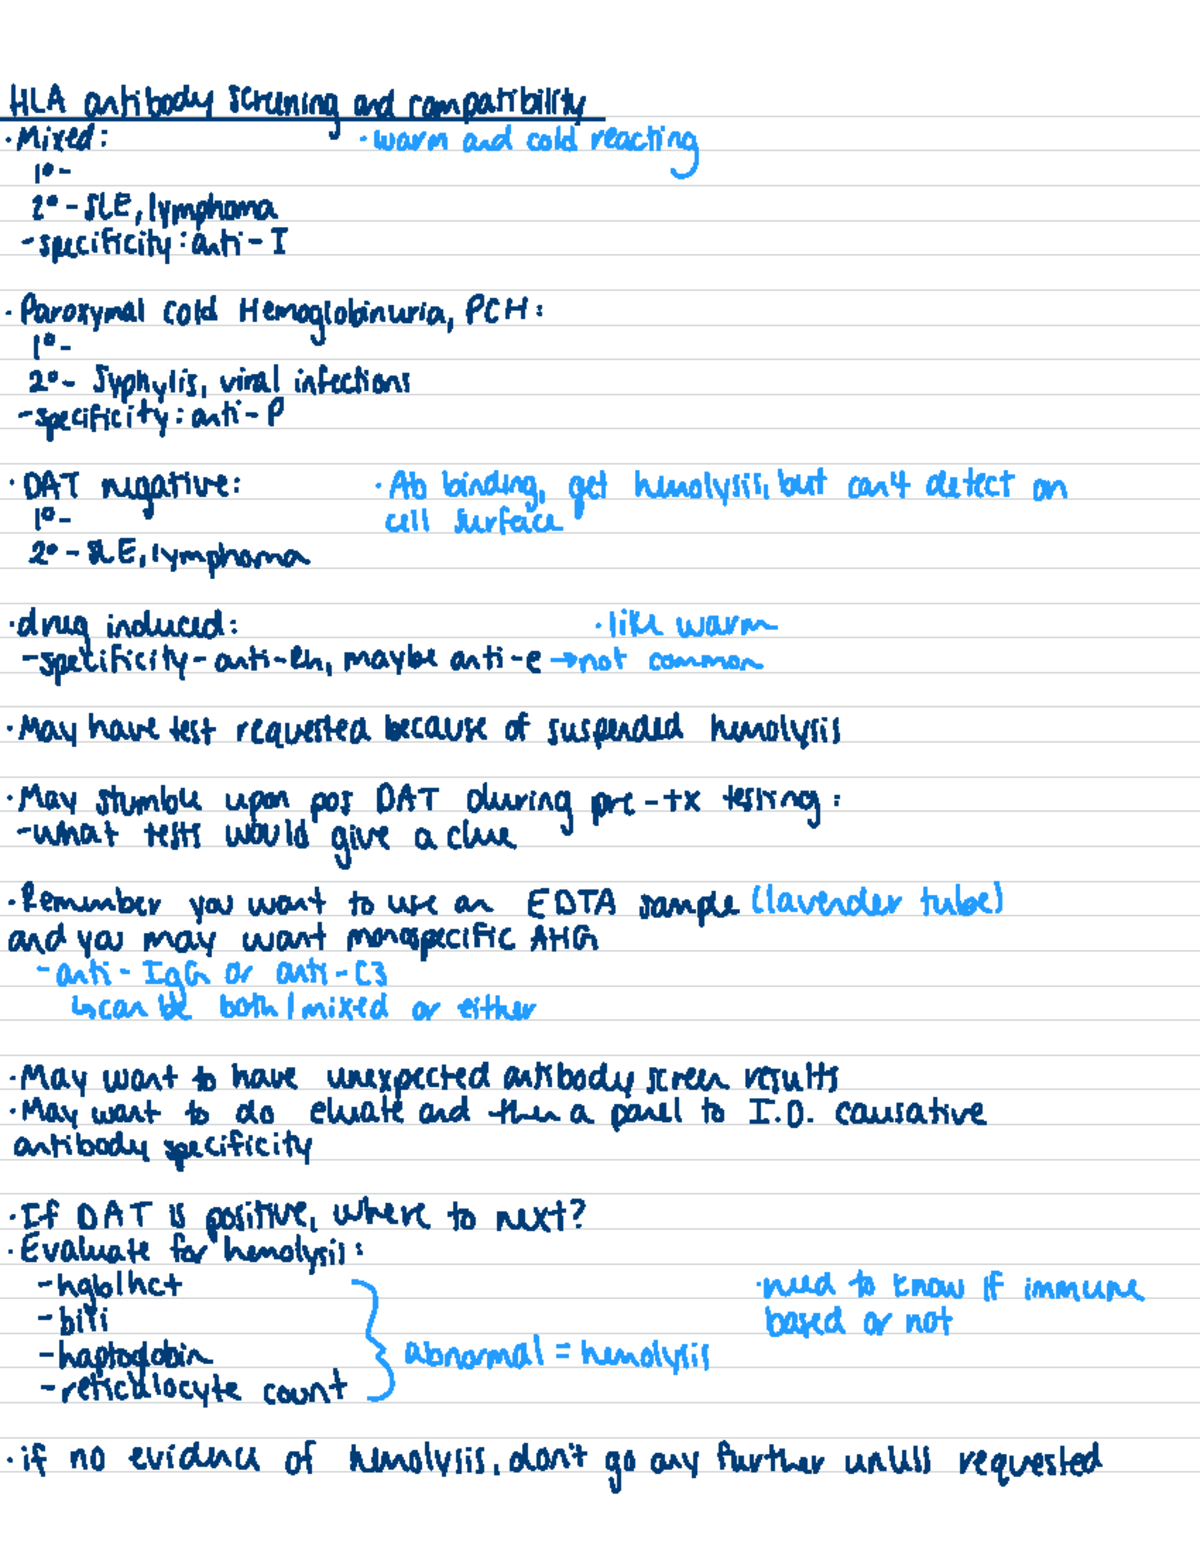 HLA antibody screening and compatibility
·Mixed: ·warm and cold reacting
1°-
2°-SLE, lymphoma
-specificity: anti-I
·Paroxymal Cold Hemoglobinuria, PCH:
1°-
2°- Syphylis, viral infections
-specificity: anti-P
·DAT negative: ·Ab binding, get hemolysis, but can't detect on
1°- cell surface
2°-SLE, lymphoma
·drug induced: ·like warm
-specificity-anti-Rh, maybe anti-e →not common
·May have test requested because of suspended hemolysis
·May stumble upon pos DAT during pre-tx testing:
-what tests would give a clue
·Remember you want to use an EDTA sample (lavender tube)
and you may want monospecific AHG
-anti-IgG or anti-C3
↳can be both/mixed or either
·May want to have unexpected antibody screen results
·May want to do eluate and then a panel to I.D. causative
antibody specificity
·If DAT is positive, where to next?
·Evaluate for hemolysis:
-hgb/hct ·need to know if immune
-bili based or not
-haptoglobin abnormal = hemolysis
-reticulocyte count
·if no evidence of hemolysis, don't go any further unless requested